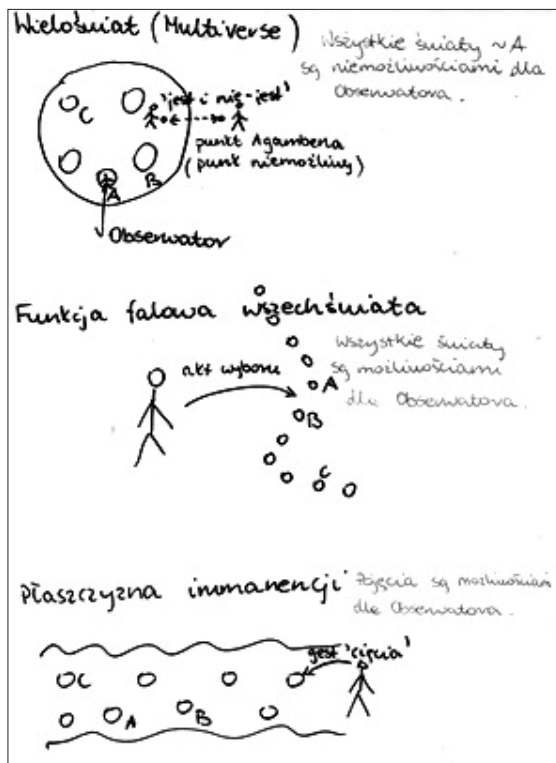 Wieloświat (Multiverse)
Wszystkie światy ~A
są niemożliwościami dla
Obserwatora.
'jest i nie-jest'
C
punkt Agambena
(punkt niemożliwy)
A
B
Obserwator
Funkcja falowa wszechświata
Wszystkie światy
są możliwościami
dla Obserwatora.
akt wyboru
A
B
C
Płaszczyzna immanencji
są możliwościami
dla Obserwatora.
gest 'cięcia'
C
A
B